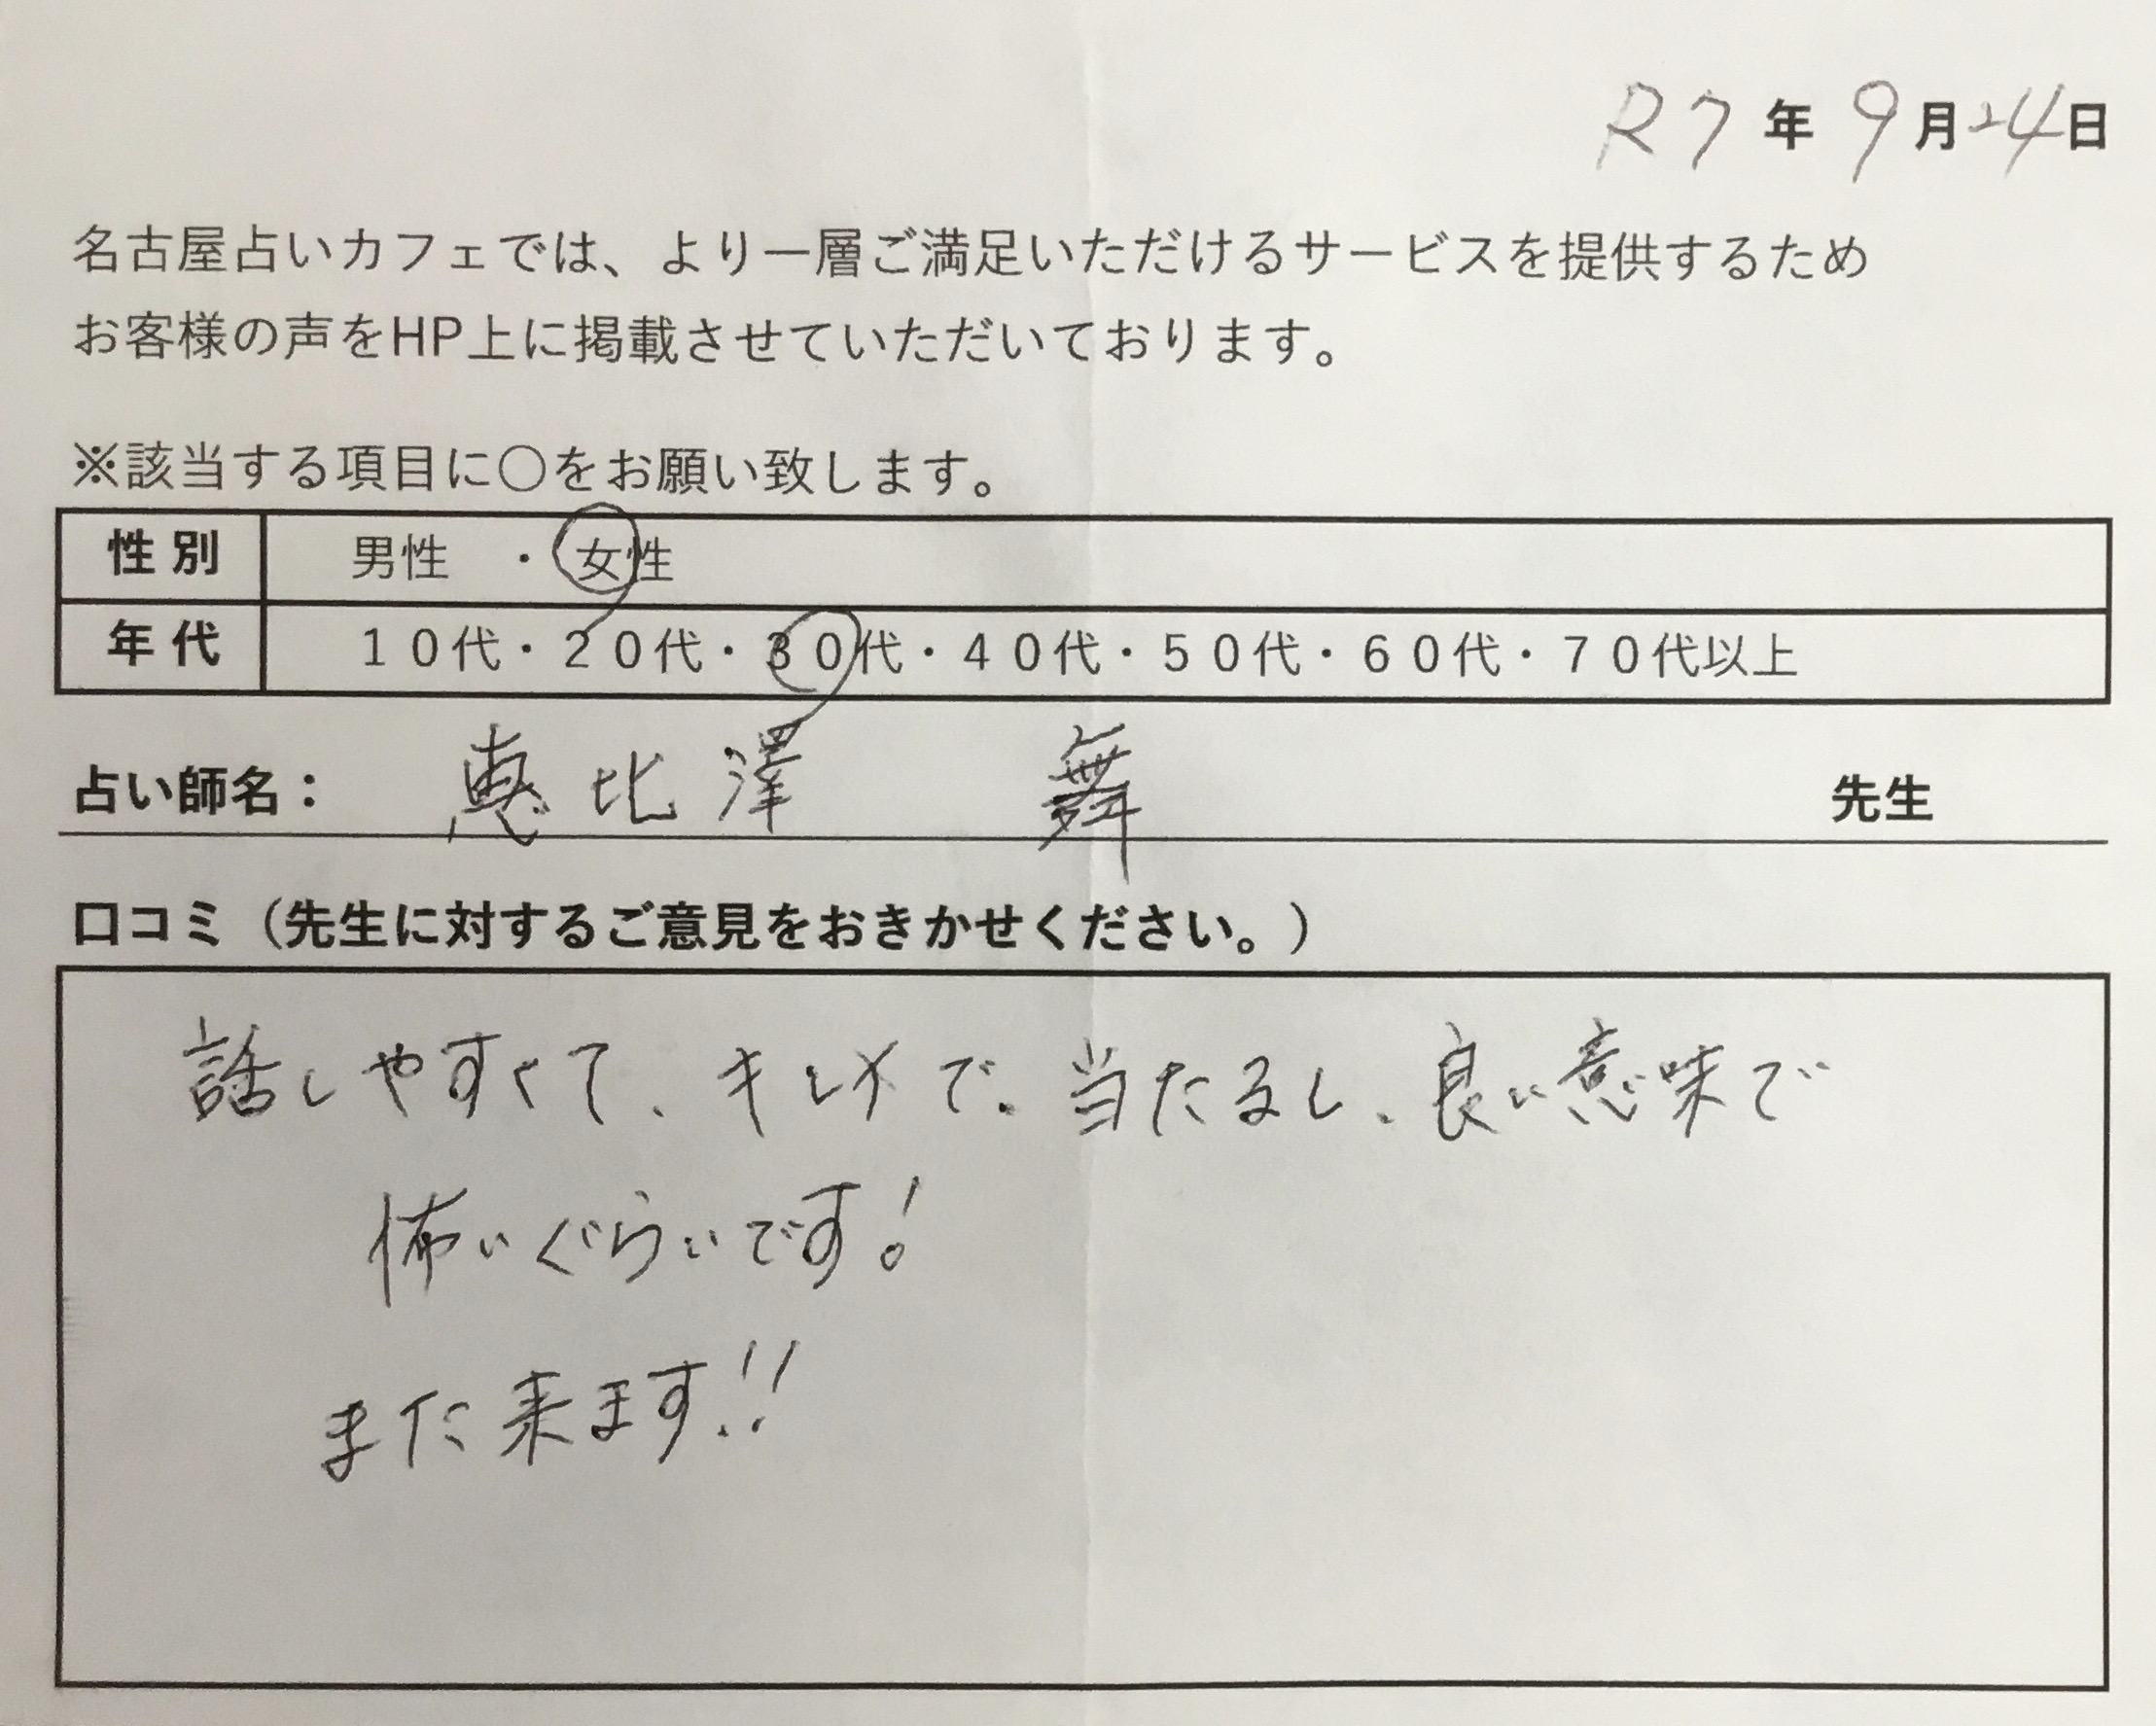 R7年9月24日
名古屋占いカフェでは、より一層ご満足いただけるサービスを提供するため
お客様の声をHP上に掲載させていただいております。
※該当する項目に〇をお願い致します。
性別 男性 ・ 女性
年代 10代・20代・30代・40代・50代・60代・70代以上
占い師名： 恵比澤 舞 先生
口コミ（先生に対するご意見をおきかせください。）
話しやすくて、キレイで、当たるし、良い意味で
怖いぐらいです!
また来ます!!